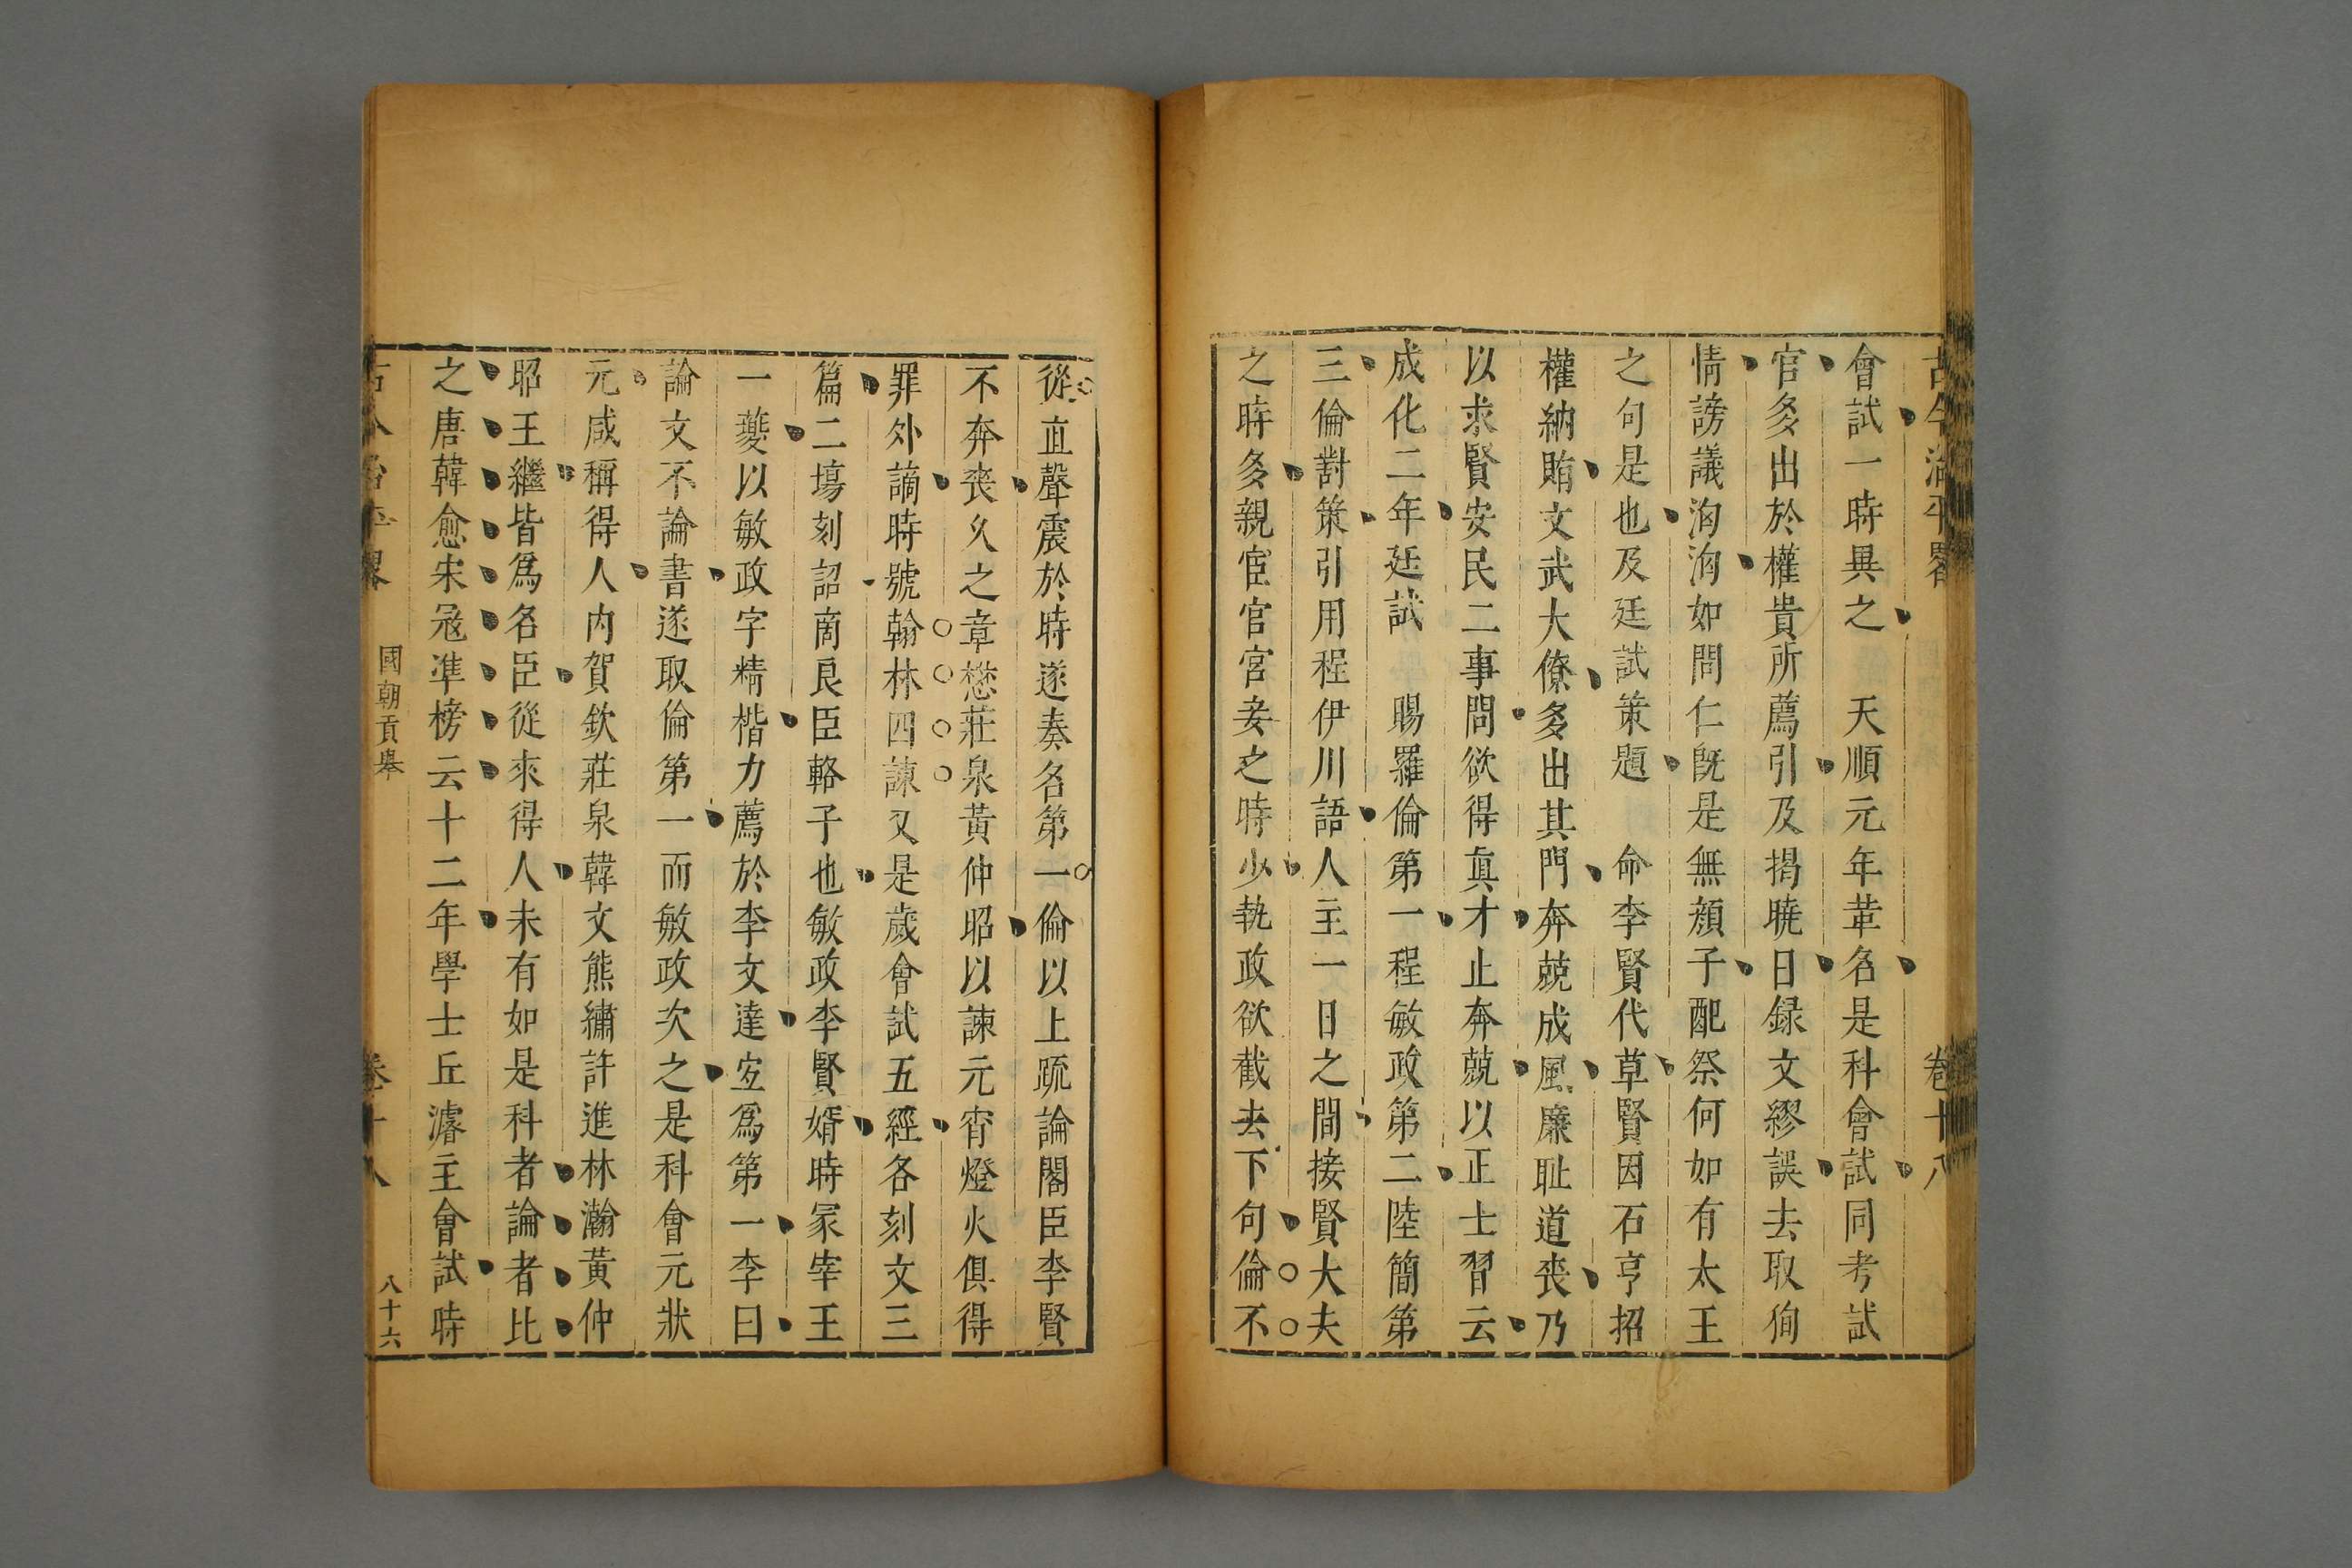 古今治平畧
卷十八
會試一時異之　天順元年葦名是科會試同考試
官多出於權貴所薦引及揭曉日録文繆誤去取徇
情謗議洶洶如問仁既是無顔子配祭何如有太王
之句是也及廷試策題　命李賢代草賢因石亨招
權納賄文武大僚多出其門奔兢成風廉耻道喪乃
以求賢安民二事問欲得眞才止奔兢以正士習云
成化二年廷試　賜羅倫第一程敏政第二陸簡第
三倫對策引用程伊川語人主一日之間接賢大夫
之時多親宦官宮妾之時少執政欲截去下句倫不
從直聲震於時遂奏名第一倫以上疏論閣臣李賢
不奔喪久之章懋莊㫤黃仲昭以諫元宵燈火俱得
罪外謫時號翰林四諫又是歲會試五經各刻文三
篇二場刻詔商良臣輅子也敏政李賢婿時冢宰王
一夔以敏政字精楷力薦於李文達宐爲第一李曰
論文不論書遂取倫第一而敏政次之是科會元狀
元咸稱得人内賀欽莊㫤韓文熊繡許進林瀚黃仲
昭王繼皆爲名臣從來得人未有如是科者論者比
之唐韓愈宋冦凖榜云十二年學士丘濬主會試時
古今治平畧
國朝貢舉
卷十八
八十六